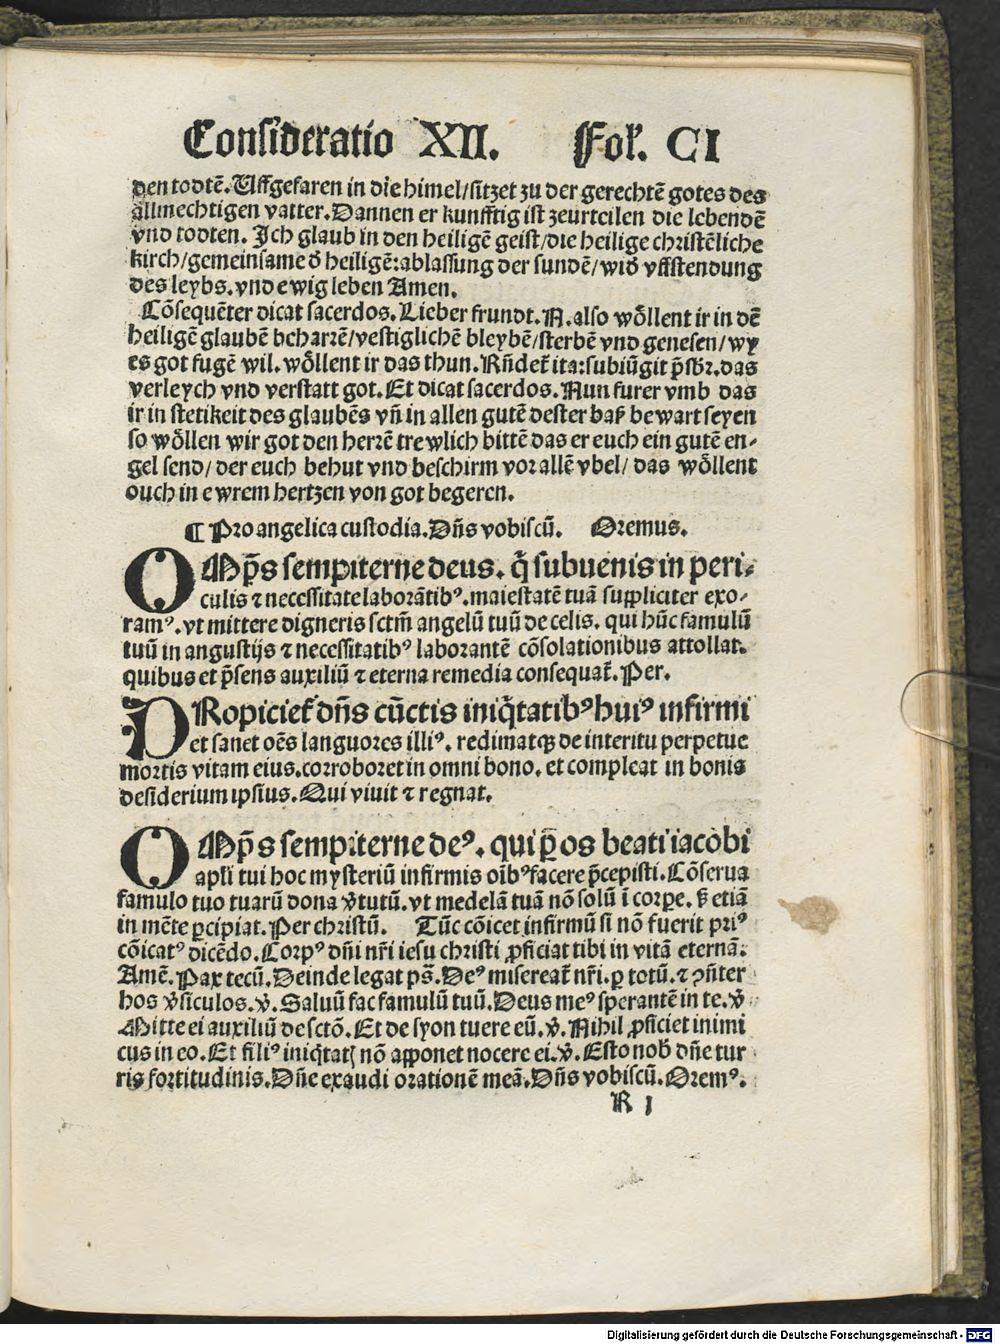 Consideratio XII. Fol'. CI
den todtē. Uffgefaren in die himel/sitzet zu der gerechtē gotes des
allmechtigen vatter. Dannen er kunfftig ist zeurteilen die lebendē
vnd todten. Ich glaub in den heiligē geist/die heilige christēliche
kirch/gemeinsame d̄ heiligē: ablassung der sundē/wid̄ vffstendung
des leybs. vnd ewig leben Amen.
Cōsequēter dicat sacerdos. Lieber frundt. N. also wöllent ir in dē
heiligē glaubē beharrē/vestiglichē bleybē/sterbē vnd genesen/wy
es got fugē wil. wöllent ir das thun. Rn̄det̛ ita: subiūgit p̄sbr̄. das
verleych vnd verstatt got. Et dicat sacerdos. Nun furer vmb das
ir in stetikeit des glaubēs vn̄ in allen gutē dester baß bewart seyen
so wöllen wir got den herrē trewlich bittē das er euch ein gutē en-
gel send/ der euch behut vnd beschirm vor allē vbel/ das wöllent
ouch in ewrem hertzen von got begeren.
¶ Pro angelica custodia. Dn̄s vobiscū. Oremus.
OMp̄s sempiterne deus. q̄ subuenis in peri-
culis ⁊ necessitate laborātibꝰ. maiestatē tuā supꝓliciter exo-
ramꝰ. vt mittere digneris sctm̄ angelū tuū de celis. qui hūc famulū
tuū in angustijs ⁊ necessitatibꝰ laborantē cōsolationibus attollat.
quibus et p̄sens auxiliū ⁊ eterna remedia consequat̛. Per.
PRopiciet̛ dn̄s cūctis iniq̄tatibꝰ huiꝰ infirmi
et sanet oēs languores illiꝰ. redimatqꝫ de interitu perpetue
mortis vitam eius. corroboret in omni bono. et compleat in bonis
desiderium ipsius. Qui viuit ⁊ regnat.
OMp̄s sempiterne deꝰ. qui ꝑ os beati iacobi
apl̄i tui hoc mysteriū infirmis oībꝰ facere p̄cepisti. Cōserua
famulo tuo tuarū dona v̄tutū. vt medelā tuā nō solū ī corpe. sꝫ etiā
in mēte ꝑcipiat. Per christū. Tūc cōicet infirmū si nō fuerit priꝰ
cōicatꝰ dicēdo. Corpꝰ dn̄i nr̄i iesu christi ꝓficiat tibi in vitā eternā.
Amē. Pax tecū. Deinde legat ps̄. Deꝰ misereat̛ nr̄i. ꝑ totū. ⁊ ꝯn̄ter
hos v̄siculos. v̄. Saluū fac famulū tuū. Deus meꝰ sperantē in te. v̄
Mitte ei auxiliū de sctō. Et de syon tuere eū. v̄. Nihil ꝓficiet inimi
cus in eo. Et filiꝰ iniq̄tatꝭ nō apponet nocere ei. v̄. Esto nob̄ dn̄e tur
ris fortitudinis. Dn̄e exaudi orationē meā. Dn̄s vobiscū. Oremꝰ.
R I
Digitalisierung gefördert durch die Deutsche Forschungsgemeinschaft - DFG